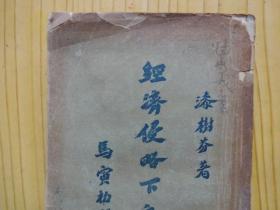 漆樹芬著
經濟侵略下
馬寅初